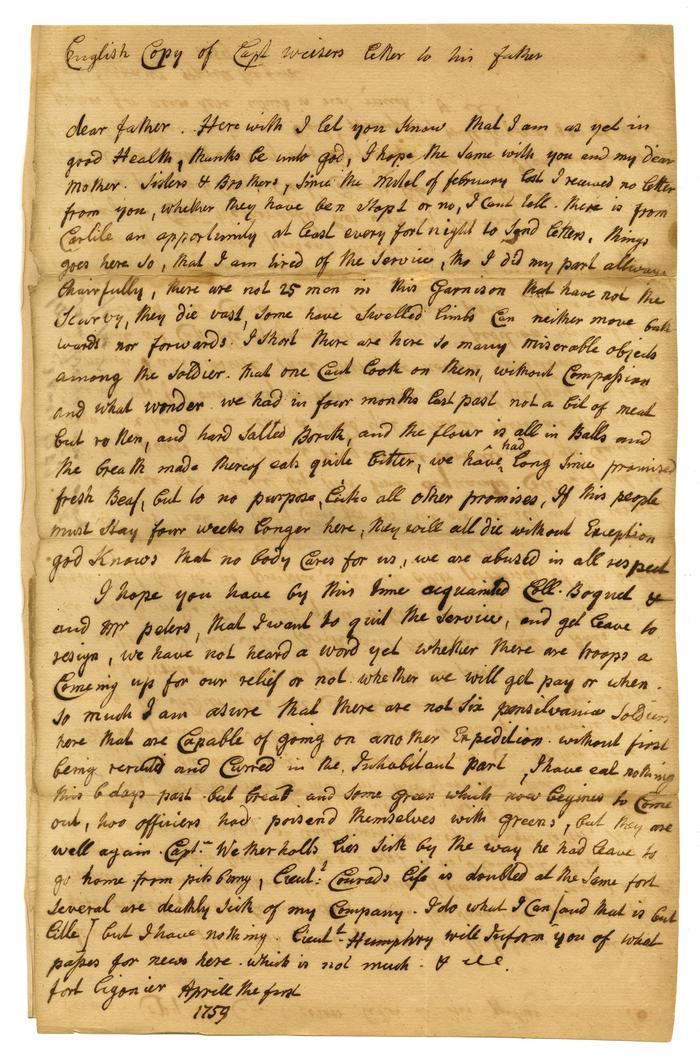 English Copy of Capt weisers letter to his father
dear father . Here with I let you Know that I am as yet in
good Health, thanks be unto god, I hope the Same with you and my dear
Mother. Sisters & Brothers, Since the Midel of february last I received no letter
from you, whether they have ben Stopt or no, I Cant tell. there is from
Carlile an opportunity at least every fort night to Send letters. things
goes here So, that I am tired of the Service, tho I did my part allways
Chairfully, there are not 25 men in this Garnison that have not the
Scurvy, they die vast, Some have Swelled limbs Can neither move back
wards nor forwards. I Short there are here so many miserable objects
among the Soldier. that one Cant look on them, without Compassion
and what wonder we had in four months last past not a bit of meat
but rotten, and hard Salted Porck, and the flour is all in Balls and
the breath made thereof eats quite bitter, we have had long Since promised
fresh Beaf, but to no purpose, Licks all other promises, If this people
must Stay four weeks longer here, they will all die without Exception
god Knows that no body Cares for us, we are abused in all respect
I hope you have by this time acquainted Coll. Boquet &
and Mr peters, that I want to quit the Service, and get leave to
resign, we have not heard a word yet whether there are troops a
Comeing up for our relief or not. whether we will get pay or when.
So much I am asure that there are not Six pensilvania Soldiers
here that are Capable of going on another Expedition without first
being recruted and Curred in the Inhabitant part, I have eat nothing
this 6 days past but breat and Some green which now begines to Come
out, two officiers had poisend themselves with greens, but they are
well again. Capt Wetherholts lies Sick by the way he had leave to
go home from pitsburg, Lieut Conrads life is doubted at the Same fort
Several are deathly Sick of my Company. I do what I Can [and that is but
litle] but I have nothing. Lieut Humphry will Inform you of what
passes for news here which is not much. &
fort ligonier Aprill the first
1759